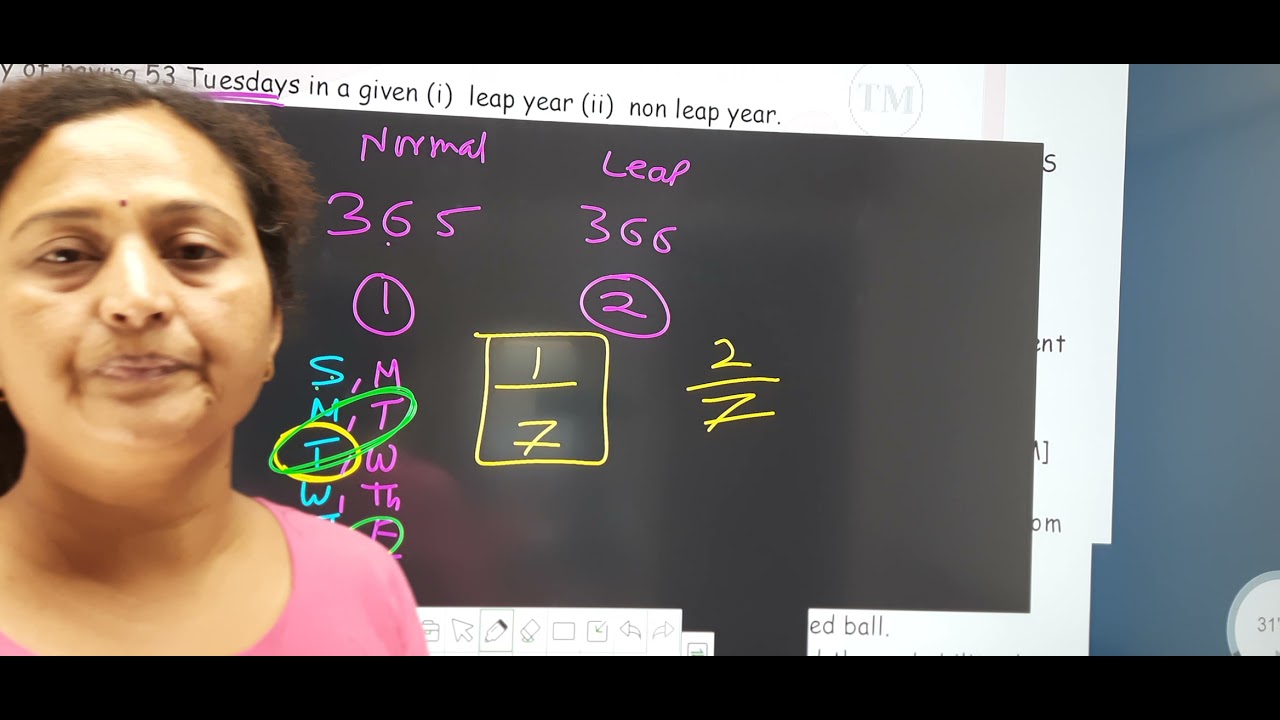 y of having 53 Tuesdays in a given (i) leap year (ii) non leap year.
TM
Normal Leap
S
365 366
1 2
S, M
1
7
2
7
ent
M, T
T, W
M]
W, Th
F
om
ed ball.
31